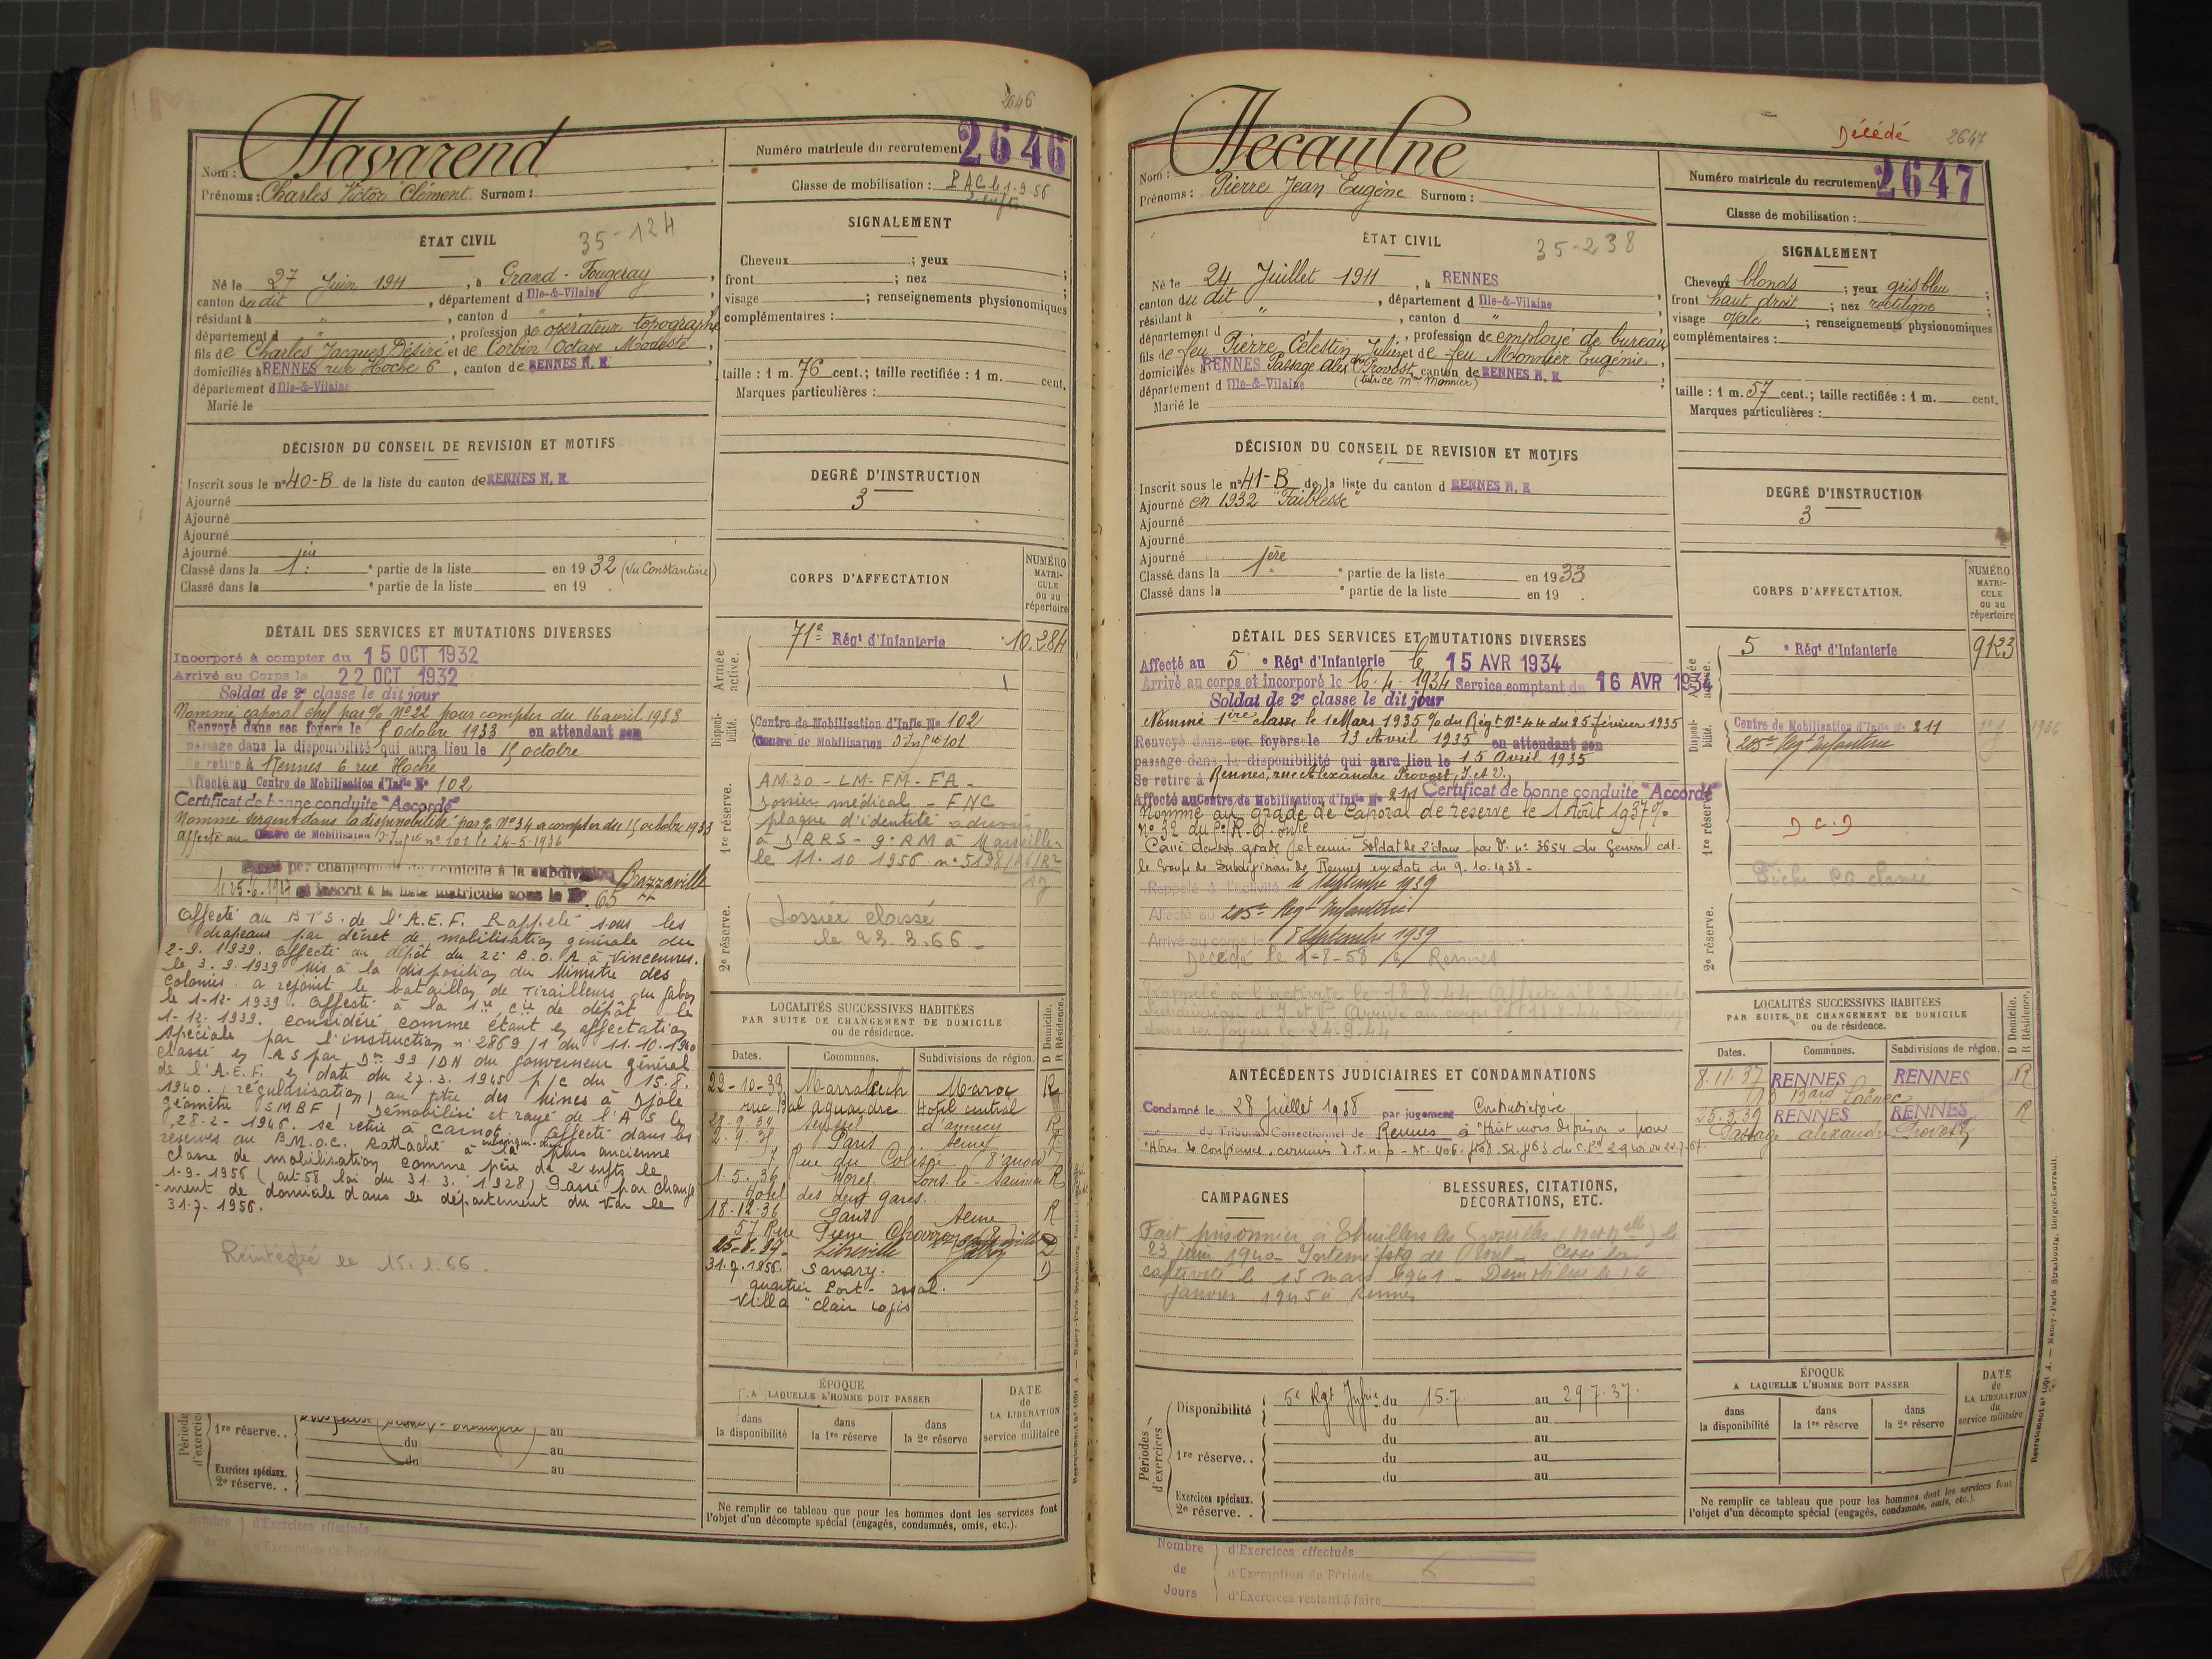 2646
Nom : Havarend
Prénoms : Charles Victor Clément Surnom :
Numéro matricule du recrutement 2646
Classe de mobilisation : P AC le 1-9-56
2 enfts
ÉTAT CIVIL
35-124
Né le 27 Juin 1911, à Grand-Fougeray,
canton du dit, département d Ille-&-Vilaine,
résidant à ", canton d "
département d ", profession de opérateur topographe
fils de Charles Jacques Désiré et de Corbin Octave Modeste,
domiciliés à RENNES rue Hoche 6, canton de RENNES N. E.,
département d Ille-&-Vilaine
Marié le
SIGNALEMENT
Cheveux ; yeux ;
front ; nez ;
visage ; renseignements physionomiques
complémentaires :
taille : 1 m. 76 cent.; taille rectifiée : 1 m. cent.
Marques particulières :
DÉCISION DU CONSEIL DE REVISION ET MOTIFS
Inscrit sous le n° 40-B de la liste du canton de RENNES N. E.
Ajourné
Ajourné
Ajourné
Ajourné
Classé dans la 1ère partie de la liste en 1932 (Vu Constantine)
Classé dans la e partie de la liste en 19 .
DEGRÉ D'INSTRUCTION
3
DÉTAIL DES SERVICES ET MUTATIONS DIVERSES
Incorporé à compter du 15 OCT 1932
Arrivé au Corps le 22 OCT 1932
Soldat de 2e classe le dit jour
Nommé caporal chef par % N° 22 pour compter du 16 avril 1933
Renvoyé dans ses foyers le octobre 1933 en attendant son
passage dans la disponibilité qui aura lieu le 15 octobre
Se retire à Rennes 6 rue Hoche
Affecté au Centre de Mobilisation d'Infie N° 102
Certificat de bonne conduite "Accordé"
Nommé sergent dans la disponibilité par % N° 34 a compter du 15 octobre 1933
Affecté au Centre de Mobilisation d'Infie n° 101 le 24-5-1936
Passé par changement de domicile à la subdivision Brazzaville
le 25.6.1937 et inscrit à la liste matricule sous le N° 65
Affecté au BTS. de l'A.E.F. Rappelé sous les
drapeaux par décret de mobilisation générale du
2-9.1939. Affecté au dépôt du 22e B.O.A à Vincennes.
le 3.9.1939 Mis à la disposition du Ministre des
Colonies. a rejoint le bataillon de Tirailleurs du Gabon
le 1-12-1939. Affecté à la 1ère Cie de dépôt le
1-12-1939. Considéré comme étant en affectation
spéciale par l'instruction n° 2869/1 du 11.10.1940
classé en A S par Don 99/DN du Gouverneur général
de l'A.E.F. en date du 27.3.1945 p/c du 15.8.
1940. (régularisation) au titre des Mines à Djolé
géomètre (SMBF) Démobilisé et rayé de l'A S le
28-2-1946. se retire à Carnot. Affecté dans les
réserves au B.M.O.C. Rattaché à la plus ancienne
classe de mobilisation comme père de 2 enfts le
1-9-1956 (art 58 loi du 31.3.1928) Passé par change
-ment de domicile dans le département du Var le
31-7-1956.
Réintégré le 15.1.66.
CORPS D'AFFECTATION
NUMÉRO MATRICULE ou au répertoire
Armée active.
71e Régt d'Infanterie 10.284
Disponibilité.
Centre de Mobilisation d'Infie N° 102
Centre de Mobilisation d'Infie 101
1re réserve.
AM30 - LM - FM - FA -
Dossier médical - FNC
plaque d'identité adressés
à RRS - 9e RM à Marseille
le 11.10.1956 n° 5198
2e réserve.
Dossier classé
le 23.3.66 -
LOCALITÉS SUCCESSIVES HABITÉES
PAR SUITE DE CHANGEMENT DE DOMICILE
ou de résidence.
D Domicile. R Résidence.
Dates. Communes. Subdivisions de région.
22-10-33 Marrakech Maroc R
Hotel central
Seyssel d'annecy R
2.9.35 Paris Seine R
Rue du Colisée (8e arrondt)
1.5.36 Morez Lons-le-Saunier R
Hotel des deux gares.
18.12.36 Paris Seine R
57 Rue Pierre
25-6-37 Libreville Gabon D
31.7.1956 Sanary. D
quartier Port-
Villa "Clair Logis
ÉPOQUE
A LAQUELLE L'HOMME DOIT PASSER
dans la disponibilité
dans la 1re réserve
dans la 2e réserve
DATE de LA LIBÉRATION du service militaire
Périodes d'exercices
1re réserve. . au
du au
du au
Exercices spéciaux.
2e réserve. .
Ne remplir ce tableau que pour les hommes dont les services font
l'objet d'un décompte spécial (engagés, condamnés, omis, etc.).
Nombre d'Exercices effectués
de d'Exemption de Période
Décédé 2647
Nom : Hecaulne
Prénoms : Pierre Jean Eugène Surnom :
Numéro matricule du recrutement 2647
Classe de mobilisation :
ÉTAT CIVIL
35-238
Né le 24 Juillet 1911, à RENNES
canton du dit, département d Ille-&-Vilaine,
résidant à ", canton d "
département d, profession de employé de bureau,
fils de feu Pierre Célestin Julien et de feu Monnier Eugénie,
domiciliés à RENNES Passage Alexdre Provost, canton de RENNES N. E.
département d Ille-&-Vilaine (tutrice Mme Monnier) ;
Marié le
SIGNALEMENT
Cheveux blonds ; yeux gris bleu ;
front haut droit ; nez rectiligne ;
visage ovale ; renseignements physionomiques
complémentaires :
taille : 1 m. 57 cent.; taille rectifiée : 1 m. cent.
Marques particulières :
DÉCISION DU CONSEIL DE REVISION ET MOTIFS
Inscrit sous le n° 41-B de la liste du canton d RENNES N. E
Ajourné en 1932 "Faiblesse"
Ajourné
Ajourné
Ajourné
Classé dans la 1ère partie de la liste en 1933
Classé dans la e partie de la liste en 19 .
DEGRÉ D'INSTRUCTION
3
DÉTAIL DES SERVICES ET MUTATIONS DIVERSES
Affecté au 5e Régt d'Infanterie le 15 AVR 1934
Arrivé au corps et incorporé le 16-4-1934 Service comptant du 16 AVR 1934
Soldat de 2e classe le dit jour
Nommé 1ère classe le 1 Mars 1935 % du Régt N° 44 du 25 février 1935
Renvoyé dans ses foyers le 13 Avril 1935 en attendant son
passage dans la disponibilité qui aura lieu le 15 Avril 1935
Se retire à Rennes, rue Alexandre Provost, I. et V.
Affecté au Centre de Mobilisation d'Infie N° 211 Certificat de bonne conduite "Accordé"
Nommé au grade de Caporal de réserve le 1 Août 1937 %
N° 32 du 5e R.I.
Cassé de son grade et remis Soldat de 2e classe par Don n° 3654 du Général cdt
le Groupe de Subdivisions de Rennes en date du 9.10.1938 -
Rappelé à l'activité le 1 Septembre 1939
Affecté au 205e Regt Infanterie
Arrivé au corps le 8 Septembre 1939
Décédé le 1-8-58 à Rennes
Rappelé à l'activité le 18-8-44 Affecté à la
Subdivision d'I et V. Arrivé au corps le 18.8.44 Renvoyé
dans ses foyers le 24.9.44
CORPS D'AFFECTATION.
NUMÉRO MATRICULE ou au répertoire
Armée active.
5e Régt d'Infanterie 9123
Disponibilité.
Centre de Mobilisation d'Infie N° 211 1936
205e Régt Infanterie
1re réserve.
D C D
Fiche PG classée
2e réserve.
ANTÉCÉDENTS JUDICIAIRES ET CONDAMNATIONS
Condamné le 28 Juillet 1938 par jugement Contradictoire
du Tribunal Correctionnel de Rennes à "Huit mois de prison" pour
"Abus de confiance, commis d.t.n.p - Art. 406. 408. 52. 463 du C.P.
CAMPAGNES
BLESSURES, CITATIONS, DÉCORATIONS, ETC.
Fait prisonnier à Thuillers les Groseilles (Mthe et Mselle) le
23 juin 1940 - Interné Stg de - Cesse la
captivité le 15 mars 1941 - Démobilisé le 12
Janvier 1945 à Rennes
LOCALITÉS SUCCESSIVES HABITÉES
PAR SUITE DE CHANGEMENT DE DOMICILE
ou de résidence.
D Domicile. R Résidence.
Dates. Communes. Subdivisions de région.
8.11.37 RENNES RENNES R
Bard Laënnec
25.3.39 RENNES RENNES R
Passage Alexandre Provost
Périodes d'exercices
Disponibilité 5e Rgt Infie du 15.7. au 29.7.37.
du au
1re réserve. . du au
du au
du au
Exercices spéciaux.
2e réserve. .
ÉPOQUE
A LAQUELLE L'HOMME DOIT PASSER
dans la disponibilité
dans la 1re réserve
dans la 2e réserve
DATE de LA LIBÉRATION du service militaire
Ne remplir ce tableau que pour les hommes dont les services font
l'objet d'un décompte spécial (engagés, condamnés, omis, etc.).
Nombre de Jours
d'Exercices effectués
d'Exemption de Période
d'Exercices restant à faire